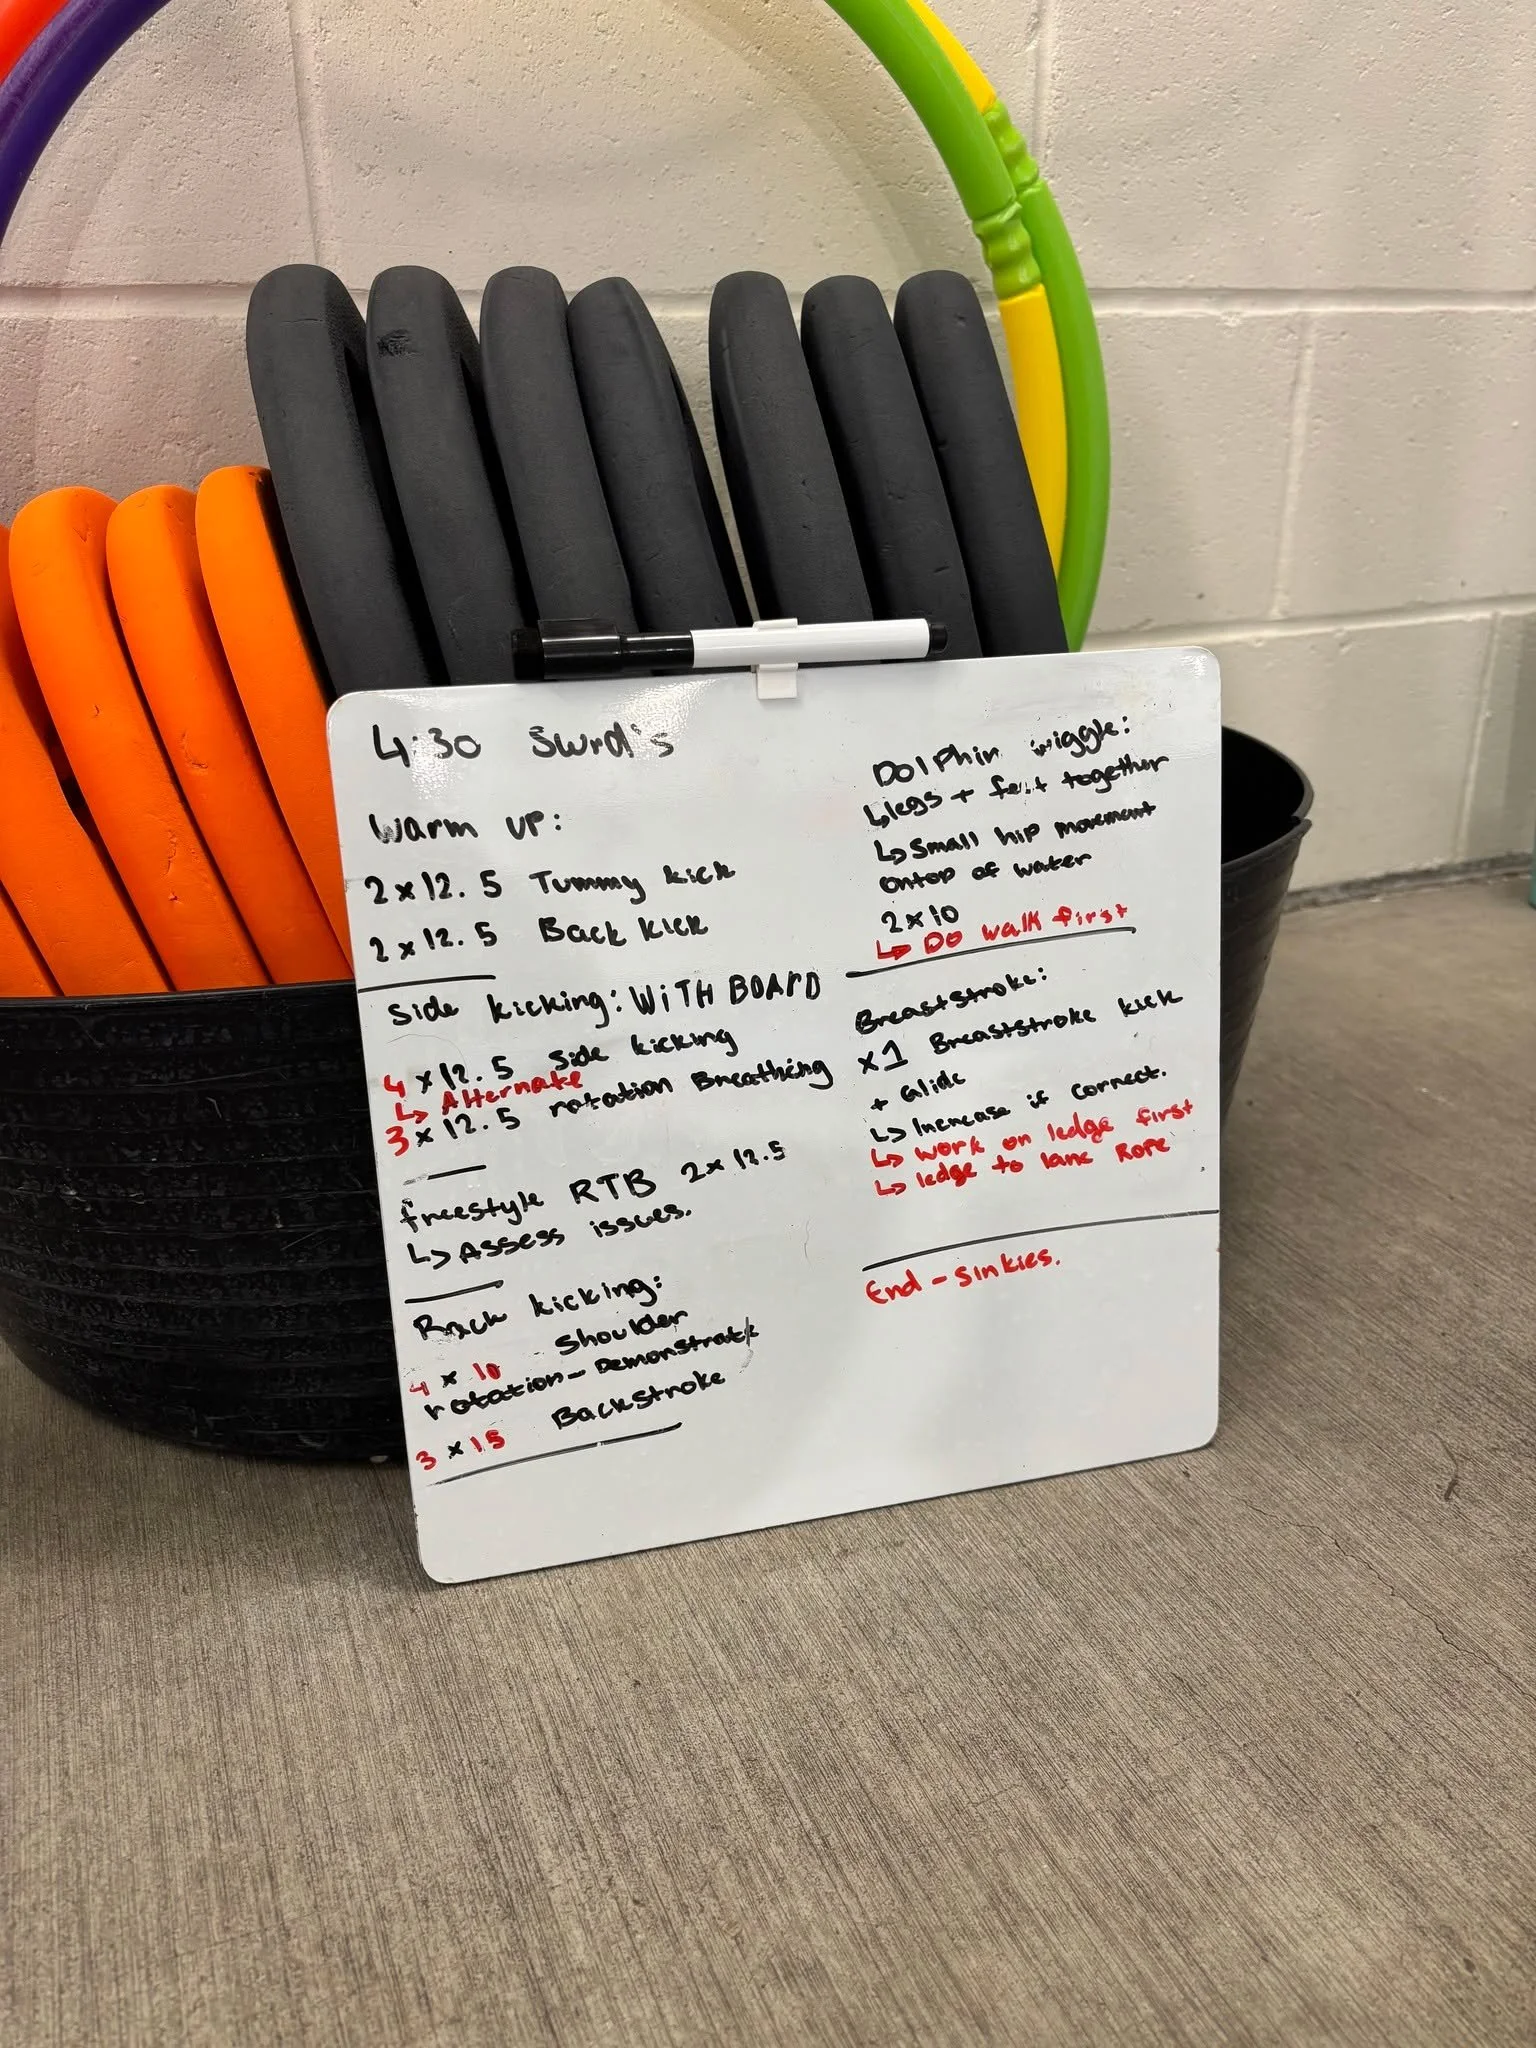 4:30 Swrd's
Warm up:
2 x 12.5 Tummy kick
2 x 12.5 Back kick
Side kicking: WITH BOARD
4 x 12.5 Side kicking
↳ Alternate
3 x 12.5 rotation Breathing
freestyle RTB 2 x 12.5
↳ Assess issues.
Back kicking:
4 x 10 Shoulder
rotation - Demonstrate
3 x 15 Backstroke
Dolphin wiggle:
↳ legs + feet together
↳ Small hip movement
ontop of water
2 x 10
↳ Do walk first
Breaststroke:
x 1 Breaststroke kick
+ Glide
↳ Increase if correct.
↳ work on ledge first
↳ ledge to lane Rope
End - sinkies.